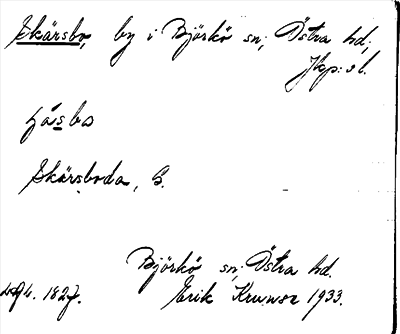 Skärsbo, by i Björkö sn; Östra hd;
Jkp: s l.
Skärsboda, S.
Björkö sn; Östra hd.
1827.
Erik 1933.